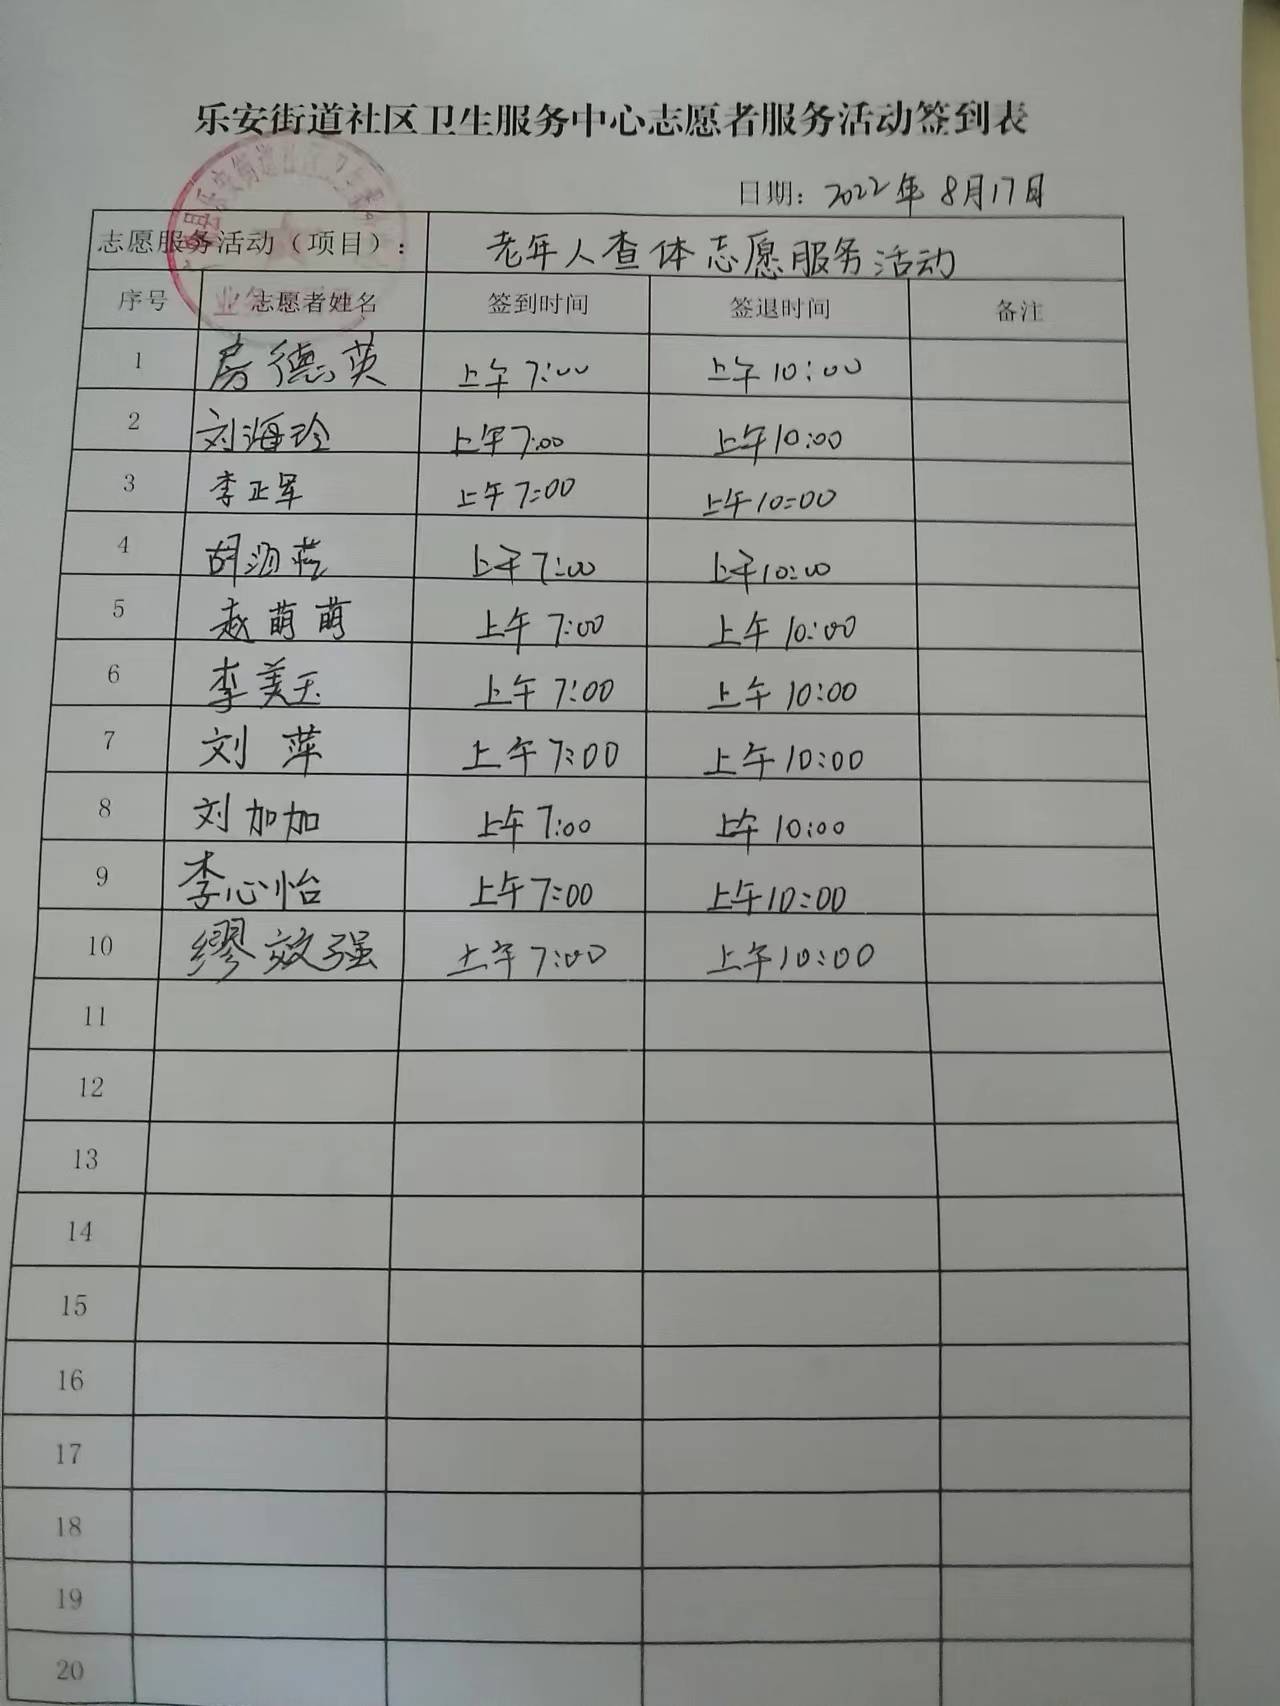 乐安街道社区卫生服务中心志愿者服务活动签到表
日期：2022年8月17日
志愿服务活动（项目）： 老年人查体志愿服务活动
序号 志愿者姓名 签到时间 签退时间 备注
1 房德英 上午7:00 上午10:00
2 刘海玲 上午7:00 上午10:00
3 李正军 上午7:00 上午10:00
4 胡 上午7:00 上午10:00
5 赵萌萌 上午7:00 上午10:00
6 李美玉 上午7:00 上午10:00
7 刘萍 上午7:00 上午10:00
8 刘加加 上午7:00 上午10:00
9 李心怡 上午7:00 上午10:00
10 缪效强 上午7:00 上午10:00
11
12
13
14
15
16
17
18
19
20
县乐安街道社区卫生服
业务